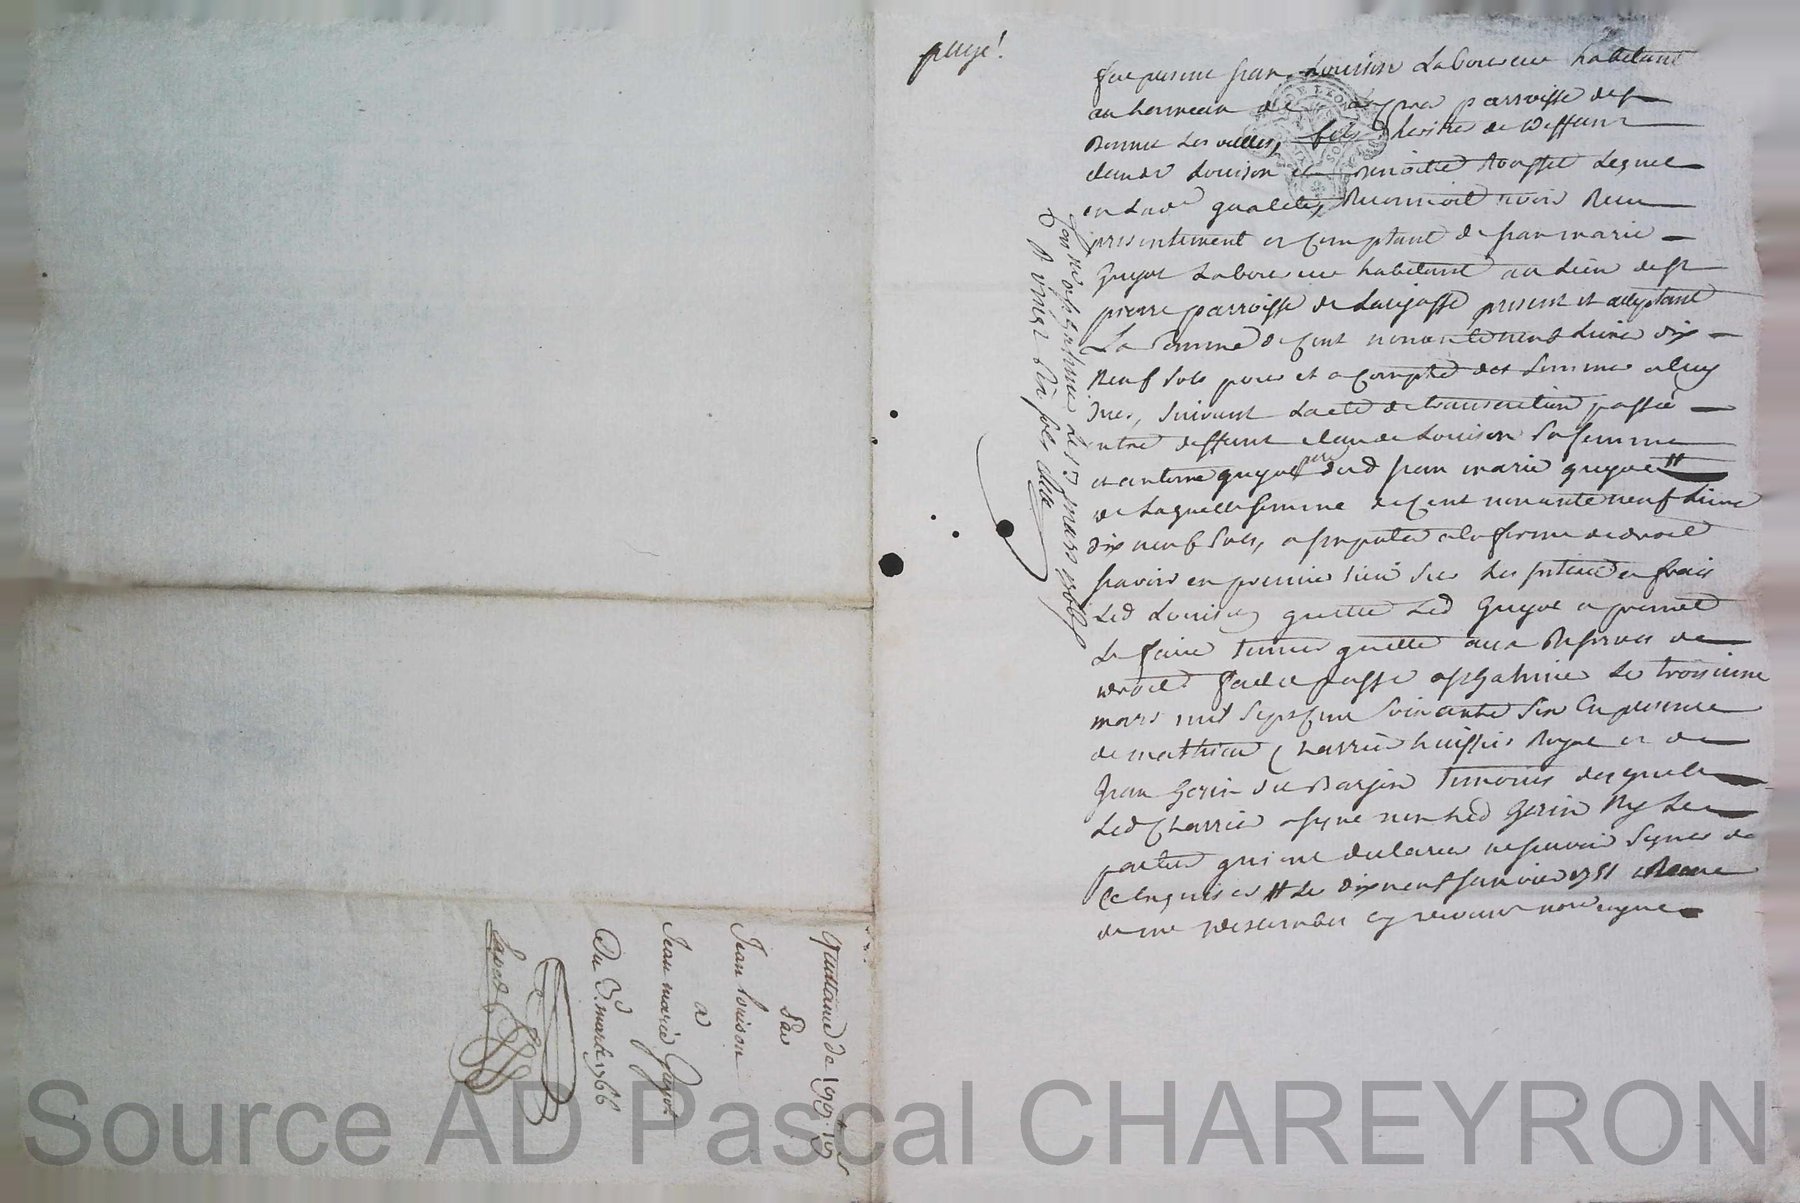 payé!
fut present jean Louison Laboureur habitant
au hameau de parroisse de st
Bonnet Les oulles, fils heritier de deffunt
claude Louison et Benoitte Rousset Lequel
en Lade qualité, Reconnoit avoir Receu
presentement et comptant de jean marie
Guyot Laboureur habitant au Lieu de st
pierre parroisse de Larajasse present et acceptant
La somme de cent nonante neuf Livre dix
neuf sols pour et a compte des sommes a luy
Dues, suivant Lacte de transaction passée
entre deffunt claude Louison sa femme
et antoine guyot pere dud jean marie guyot #
de Laquelle somme de cent nonante neuf Livre
dix neuf sols, a imputer a la forme de droit
savoir en premier lieu sur les interet et frais
Led Louison quitte Led Guyot et promet
Le faire tenir quitte aux Reserves de
droit fait et passé a st galmier Le troisieme
mars mil sept cent soixante six En presence
de mathieu Charrié huissier Royal et de
Jean Gerin temoins desquels
Led Charrié a signé non Led Gerin Ny Les
parties qui ont declaré ne savoir signer de
ce Enquis et # Le dix neuf janvier 1751
de me Descombes cy devant nore
Con. né a st galmier Le 13 mars 1766
R vingt six sols
Quittance de 199. 19
Par
Jean Louison
a
Jean marie Guyot
Du 3e. mars 1766
Source AD Pascal CHAREYRON